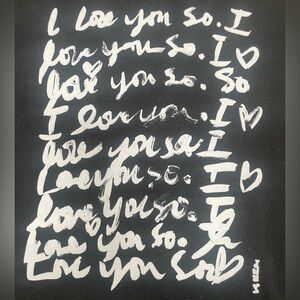 I love you so. I
love you so. I ♡
love you so. So
I love you. I ♡
love you so I
Love you so. I ♡
love you so. I
Love you so.
Love you so ♡